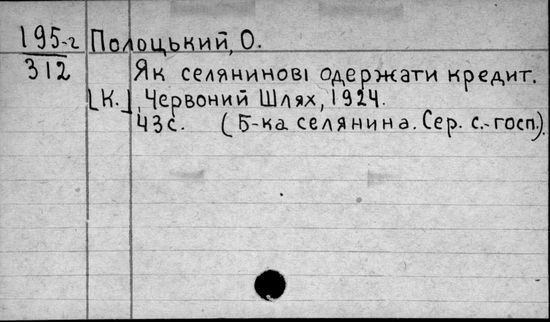 195-г Полоцький, О.
312
Як селянинові одержати кредит.
[К.], Червоний Шлях, 1924.
43с. (Б-ка селянина. Сер. с.-госп.).